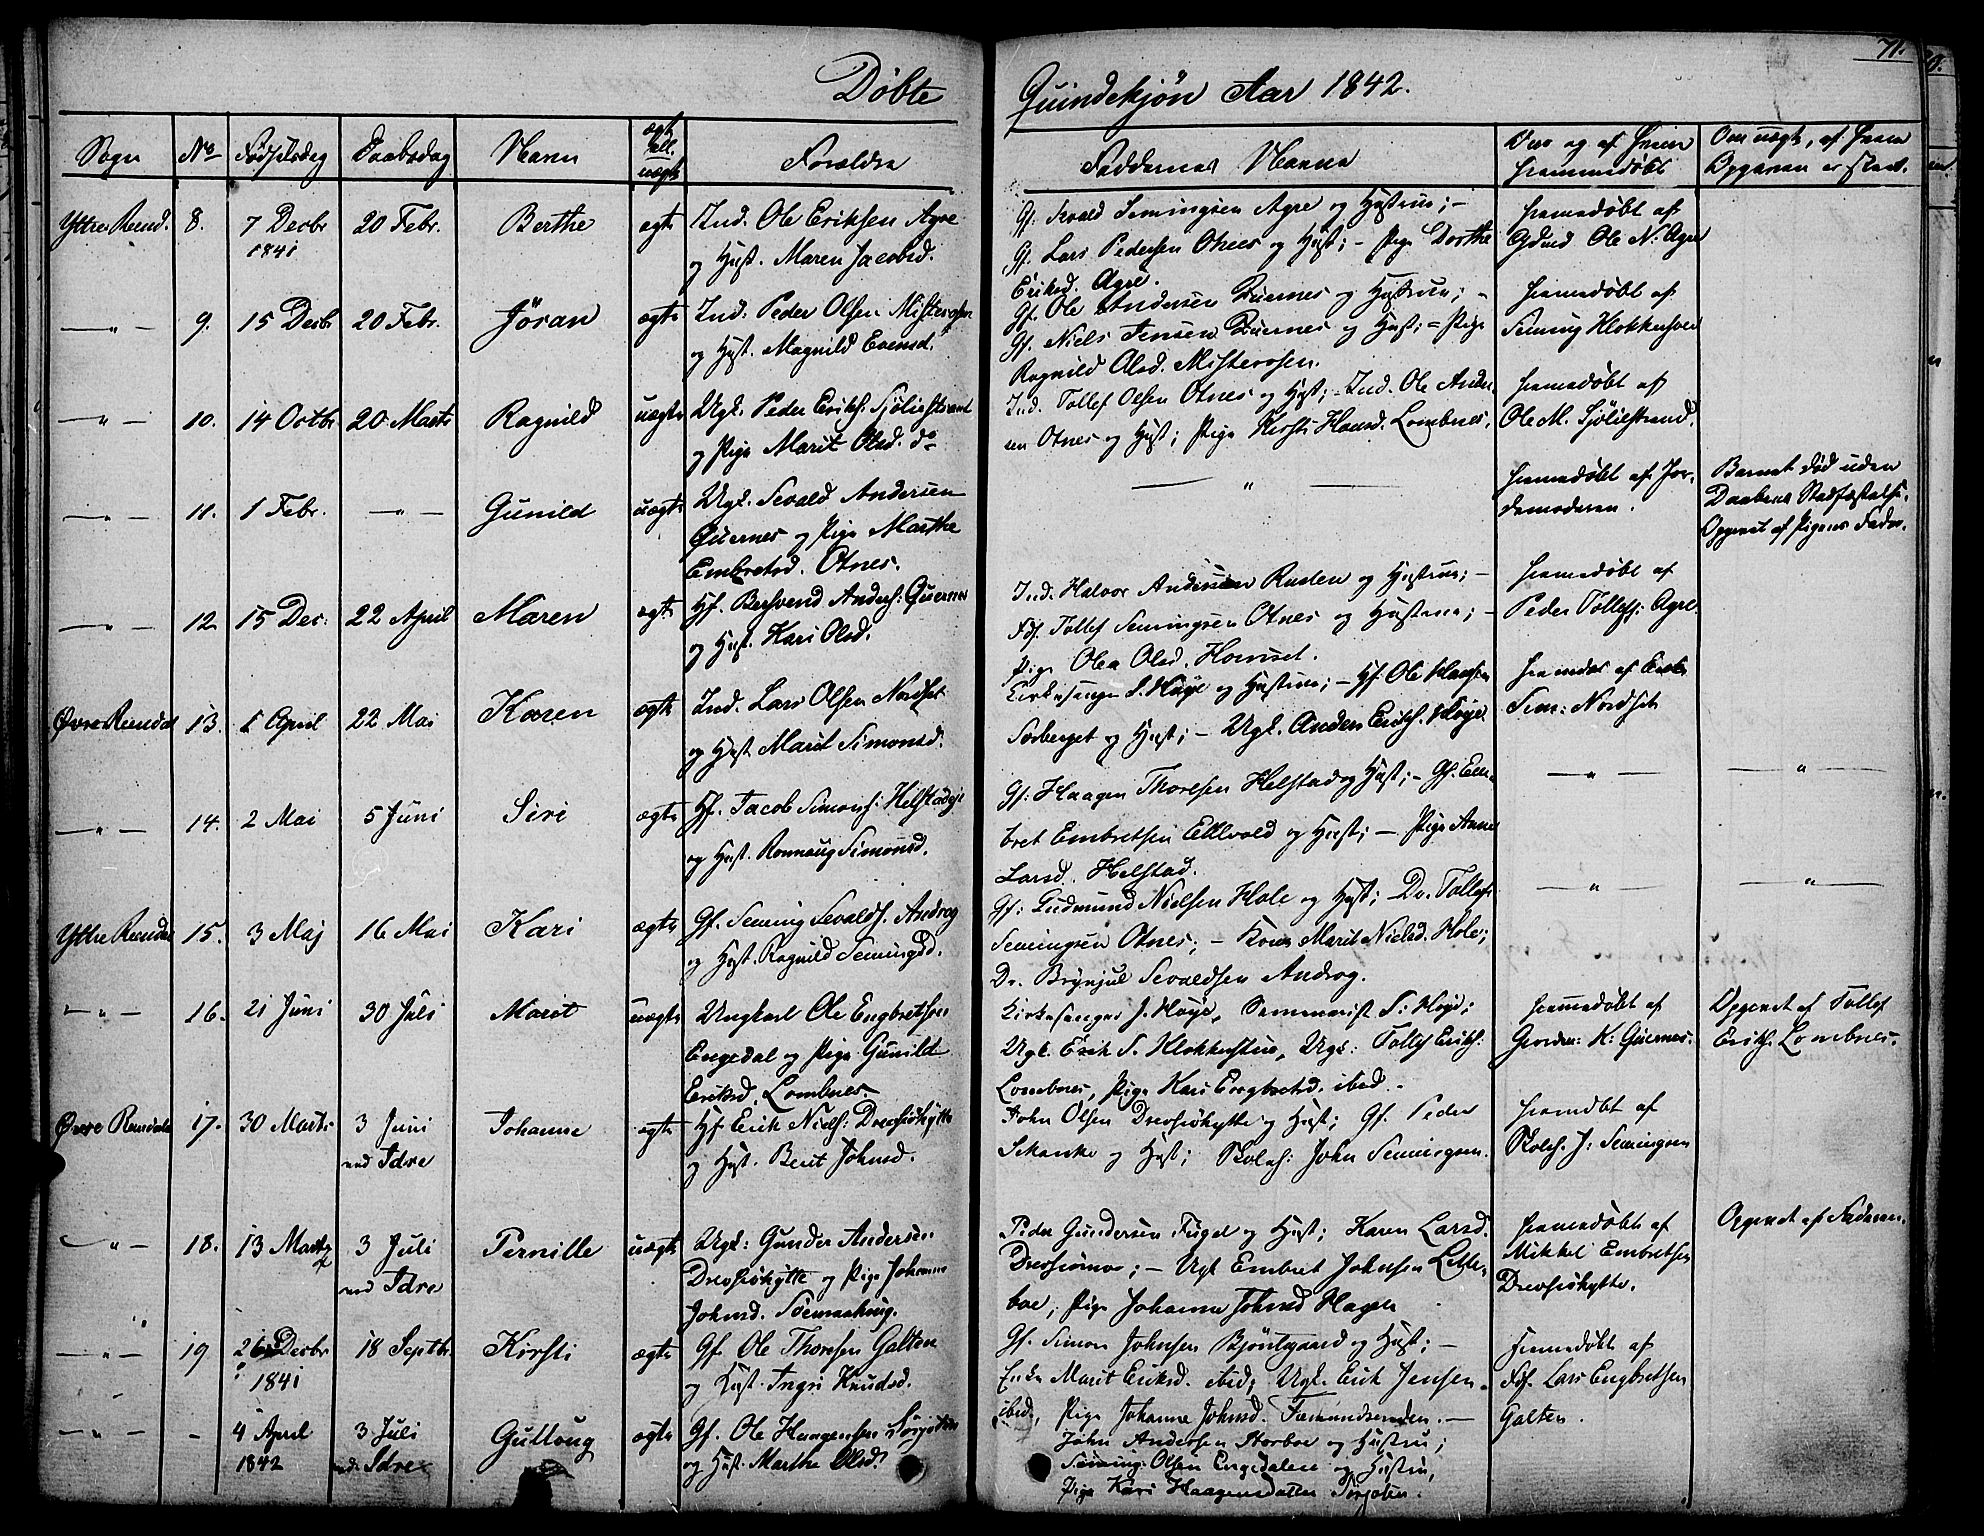 71.
Döbte Quindekjön Aar 1842.
Sogn No Födselsdag Daabsdag Navn ægte ell. uægte Forældre Faddernes Navne
Ytre Rend. 8. 7 Decbr 1841 20 Febr. Berthe ægte Ind. Ole Eriksen Agre
og Hust. Maren Jacobsd.
Gf. Sevald Semingsen Agre og Hustrue; –
Gf. Lars Pedersen Otnes og Hust; – Pige Dorthe
Eriksd. Agre.
hjemmedöbt af
Gdmd Ole N: Agre
–"– 9. 15 Decbr 20 Febr. Jöran ægte Ind. Peder Olsen Misterosen
og Hust. Magnild Evensd.
Gf. Ole Andersen Quernes og Hustrue; –
Gf. Niels Jensen Quernes og Hust; – Pige
Ragnild Olsd. Misterosen.
hjemmedöbt af
Seming Klokkerhus
–"– 10. 14 Octbr 20 Marts Ragnild uægte Ugk. Peder Eriks: Sjöliestrand
og Pige Marit Olsd. do
Ind. Tollef Olsen Otnes og Hust; – Ind. Ole Ander-
sen Otnes og Hust; Pige Kirsti Hansd. Lombnes.
hjemmedöbt af
Ole M. Sjöliestrand.
–"– 11. 1 Febr. –"– Gunild uægte Ugk. Sevald Andersen
Quernes og Pige Marthe
Embretsd. Otnes.
–"–
hjemmedöbt af Jor-
demoderen.
Barnet död uden
Daabens Stadfæstelse.
Opgivet af Pigens Fader.
–"– 12. 15 Dec: 22 April Maren ægte Hf. Bersvend Anders: Quernes
og Hust. Kari Olsd.
Ind. Halvor Andersen Rusten og Hustrue; –
Fdf. Tollef Semingsen Otnes og Hustrue; –
Pige Olea Olsd. Hornset.
hjemmedöbt af
Peder Tollefs: Agre.
Övre Rendal 13. 1 April 22 Mai Karen ægte Ind. Lars Olsen Nordset
og Hust Marit Simonsd.
Kirkesanger S. Höye og Hustrue; – Hf. Ole Hansen
Sorberget og Hust; – Ugk. Anders Eriks. Höye
hjemdöbt af
Sim: Nordset
–"– 14. 2 Mai 5 Juni Siri ægte Hf. Jacob Simons: Helstadeje
og Hust. Ronnaug Simonsd.
Gf: Haagen Thoresen Helstad og Hust; – Gf. Em-
bret Embretsen Ellevold og Hust; – Pige Anne
Larsd. Helstad.
–"– –"–
Ytre Rendal 15. 3 Maj 16 Mai Kari ægte Gf. Seming Sevalds. Androg
og Hust. Ragnild Semingsd.
Gf: Gudmund Nielsen Hole og Hust; Dr. Tollef
Semingsen Otnes; – Kone Marit Nielsd. Hole;
Dr. Brynjul Sevaldsen Androg.
–"– –"–
–"– 16. 21 Juni 30 Juli Marit uægte Ungkarl Ole Engbretsen
Engedal og Pige Gunild
Eriksd. Lombnes.
Kirkesanger J. Höye, Seminarist S. Höye;
Ugk. Erik S. Klokkerhus, Ugk: Tollef Eriks:
Lombnes, Pige Kari Engbretsd. ibid. –
hjemmedöbt af
K: Quernes.
Opgivet af Tollef
Eriks. Lombnes.
Övre Rendal 17. 30 Marts 3 Juni
ved Idre Johanne ægte Hf. Erik Niels: Drevsiöhytte
og Hust. Berit Johnsd.
John Olsen Drevsiöhytte og Hust; Gf. Peder
Skanke og Hust; Skoleh: John Semingsen.
hjemdöbt af
Skoleh. J: Semingsen
–"– 18. 13 Marts 3 Juli
ved Idre Pernille uægte Ugk: Gunder Andersen
Drevsiöhytte og Pige Johanne
Johnsd.
Peder Gundersen Fugel og Hust; Karen Larsd.
Drevsiömoe; – Ugk Embret Johnsen Lille-
boe, Pige Johanne Johnsd Hagen
hjemmedöbt af
Mikkel Embretsen
Drevsiöhytte.
Opgivet af Faderen.
–"– 19 26 Decbr 1841 18 Septbr. Kirsti ægte Gf. Ole Thoresen Galten
og Hust. Ingri Knudsd.
Gf. Simon Johnsen Bjöntegaard og Hust; –
Enke Marit Eriksd. ibid; Ugk. Erik Jensen
ibid, Pige Johanne Johnsd. Fæmundsenden. –
hjemmedöbt af
Fdf. Lars Engbretsen
Galten.
–"– – 4 April 1842 3 Juli
ved Idre Gulloug ægte Gf. Ole Haagensen Sörjoten
og Hust. Marthe Olsd.
John Andersen Storboe og Hustru;
Seming Olsen Engedalen og Hustru,
Pige Kari Haagensdatter Sörjoten.